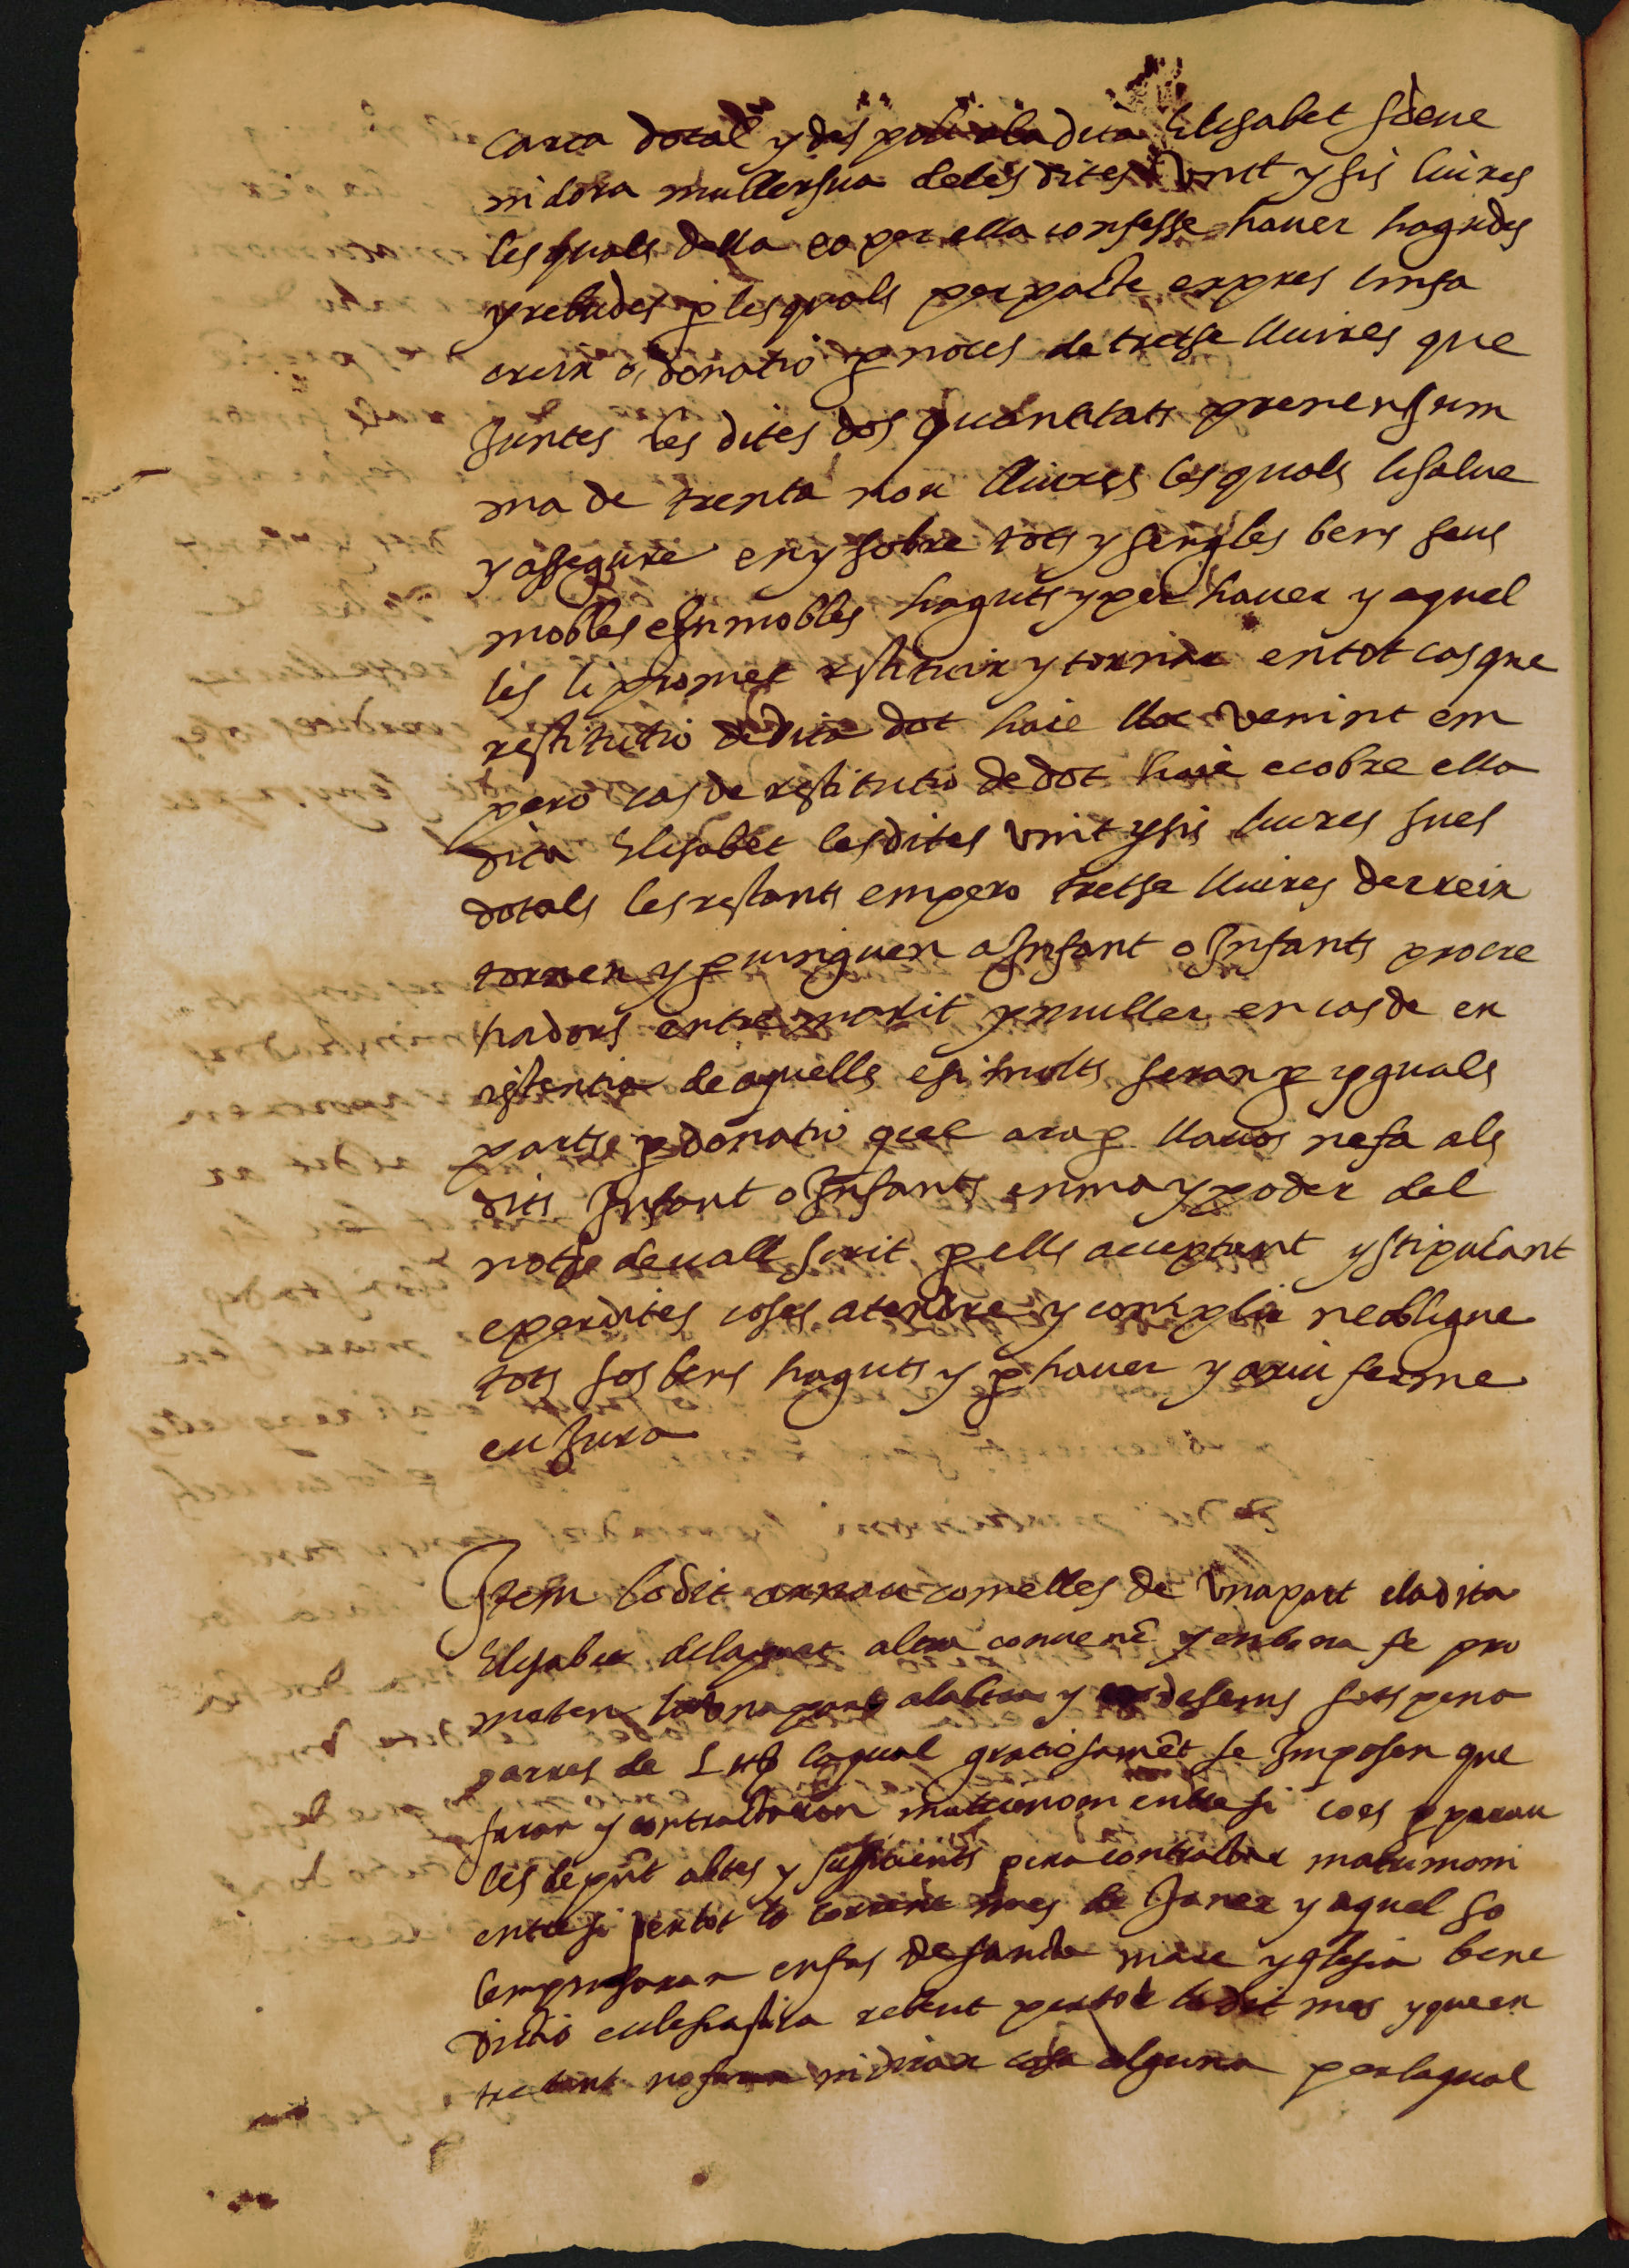 carta dotal y des poli ala dita Elisabet sdeve
nidora muller sua deles dites vint y sis liures
les quals della e o per ella confesse hauer hagudes
y rebudes p les quals per pacte expres linfa
creix o donatio p noces de tretse lliures que
Juntes les dites dos quantitats prenen sum
ma de trenta nou lliures les quals li salue
y assegure en y sobre tots y sengles bens seus
mobles e Inmobles haguts y per hauer y aquel
les li promet restituir y tornar en tot cas que
restitutio de dita dot haie lloc venint em
pero cas de restitutio de dot haie e cobre ella
dita Elisabet les dites vint y sis liures sues
dotals les restants empero tretse lliures de creix
tornen y p uinguen a Infant o Infants procre
hadors entre marit y muller en cas de ex
istentia de aquells e si molts seran p yguals
parts e p donatio que ara p llauos ne fa als
dits Infant o Infants en ma y poder del
notȝe deuall scrit p ells acceptant y stipulant
e per dites coses atendre y complir ne obligue
tots sos bens haguts y p hauer y axiu ferme
eu Jura
Item lo dit arnau comelles de vna part e la dita
Elisabet de la part altra conuenē y en bona fe pro
meten la vna part a la altra y en desems sots pena
parres de L ll la qual gratiosamēt se Imposen que
faran y contractaran matrimoni entre si cors p parau
les de pn̄t abtes y suffitients pera contractar matrimoni
entre si per tot lo corrent mes de Janer y aquel so
lempnisaran en fas de sancta mare yglesia bene
dictio eclesiastica rebent per tot lo dit mes y que en
tre tant no faran ni diran cosa alguna per la qual